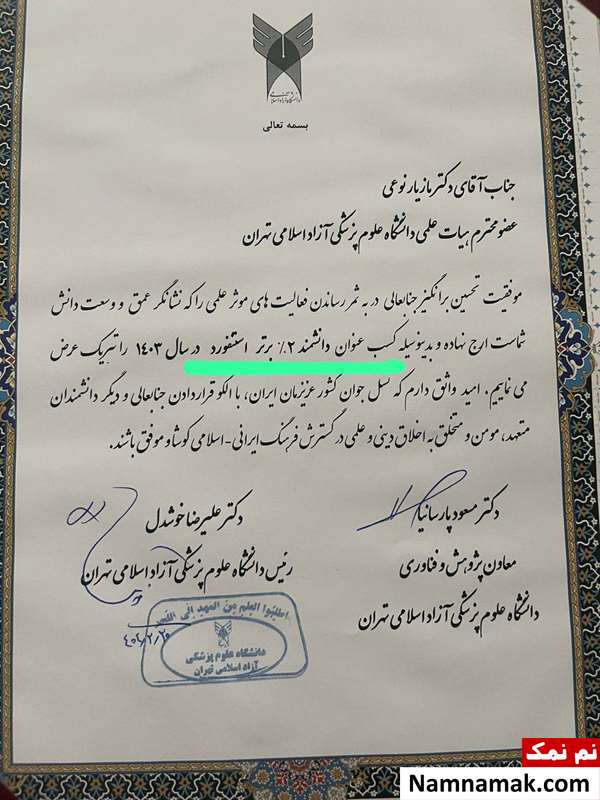 دانشگاه آزاد اسلامی
بسمه تعالی
جناب آقای دکتر مازیار نوعی
عضو محترم هیات علمی دانشگاه علوم پزشکی آزاد اسلامی تهران
موفقیت تحسین برانگیز جنابعالی در به ثمر رساندن فعالیت های موثر علمی را که نشانگر عمق و وسعت دانش
شماست ارج نهاده و بدینوسیله کسب عنوان دانشمند ۲٪ برتر استنفورد در سال ۱۴۰۳ را تبریک عرض
می نماییم. امید واثق دارم که نسل جوان کشور عزیزمان ایران، با الگو قراردادن جنابعالی و دیگر دانشمندان
متعهد، مومن و متخلق به اخلاق دینی و علمی در گسترش فرهنگ ایرانی-اسلامی کوشا و موفق باشند.
دکتر مسعود پارسانیا
معاون پژوهش و فناوری
دانشگاه علوم پزشکی آزاد اسلامی تهران
دکتر علیرضا خوشدل
رئیس دانشگاه علوم پزشکی آزاد اسلامی تهران
اطلبوا العلم من المهد الی اللحد
دانشگاه علوم پزشکی
آزاد اسلامی تهران
نم نمک
Namnamak.com